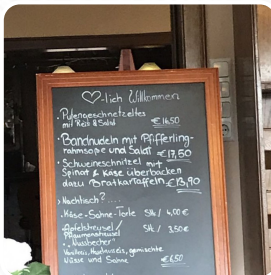 -lich Willkommen
• Putengeschnetzeltes
mit Reis & Salat €16,50
• Bandnudeln mit Pfifferling-
rahmsoße und Salat €17,50
• Schweineschnitzel mit
Spinat & Käse überbacken
dazu Bratkartoffeln €13,90
• Nachtisch?....
• Käse-Sahne-Torte Stk/ 4,00€
• Apfelstreusel/
Pflaumenstreusel Stk/ 3,50€
• "Nussbecher"
Vanilleeis, Haselnusseis, gemischte
Nüsse und Sahne €6,50